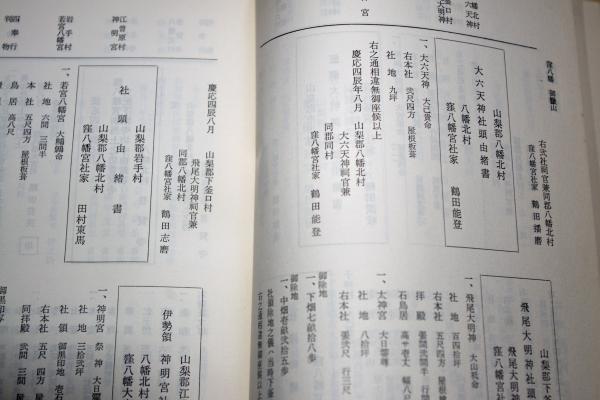 窪八幡 御嶽山
右弐社祠官兼同郡八幡北村
窪八幡宮社家 鶴田播磨
六天神
八幡北村
大明神
宮
山梨郡八幡北村
大六天神社頭由緒書
八幡北村
窪八幡宮社家 鶴田能登
一、大六天神 大己貴命
右本社 弐尺四方 屋根板葺
社地 九坪
右之通相違無御座候以上
慶応四辰年八月 山梨郡八幡北村
大六天神祠官兼
同郡同村
窪八幡宮社家 鶴田能登
山梨郡下釜
飛尾大明神社頭
飛尾大明神
窪八幡宮
一、飛尾大明神 大山祗命
社地 百四拾坪
右本社 五尺四方 屋根
拝殿 弐間三間
石鳥居 高サ壱丈 幅八尺
一、太神宮 大日孁尊
社地 八拾坪
右本社 行三尺
御除地
一、下畑七畝拾八歩
御除地
一、中畑壱畝弐拾五歩
社領除地之儀当時下釜
右之通相違無御座候以上
慶応四辰八月 山梨郡下釜口村
飛尾大明神祠官兼
同郡八幡北村
窪八幡宮社家 鶴田志磨
江曽原村
神明宮
岩手村
若宮八幡宮
四奉行
判物
山梨郡岩手村
社頭由緒書
山梨郡八幡北村
窪八幡宮社家 田村東馬
一、若宮八幡宮 大鷦鷯命
社地 六間 三間半
本社 五尺四方 屋根板葺
鳥居 高八尺
山梨郡江
伊勢領 神明宮社
八幡北村
窪八幡大
一、神明宮 祭神 大日孁
社地 三拾弐坪
社領 御黒印地 壱石
右本社 五尺四方 屋根
同拝殿 弐間 三間 屋
御黒印写